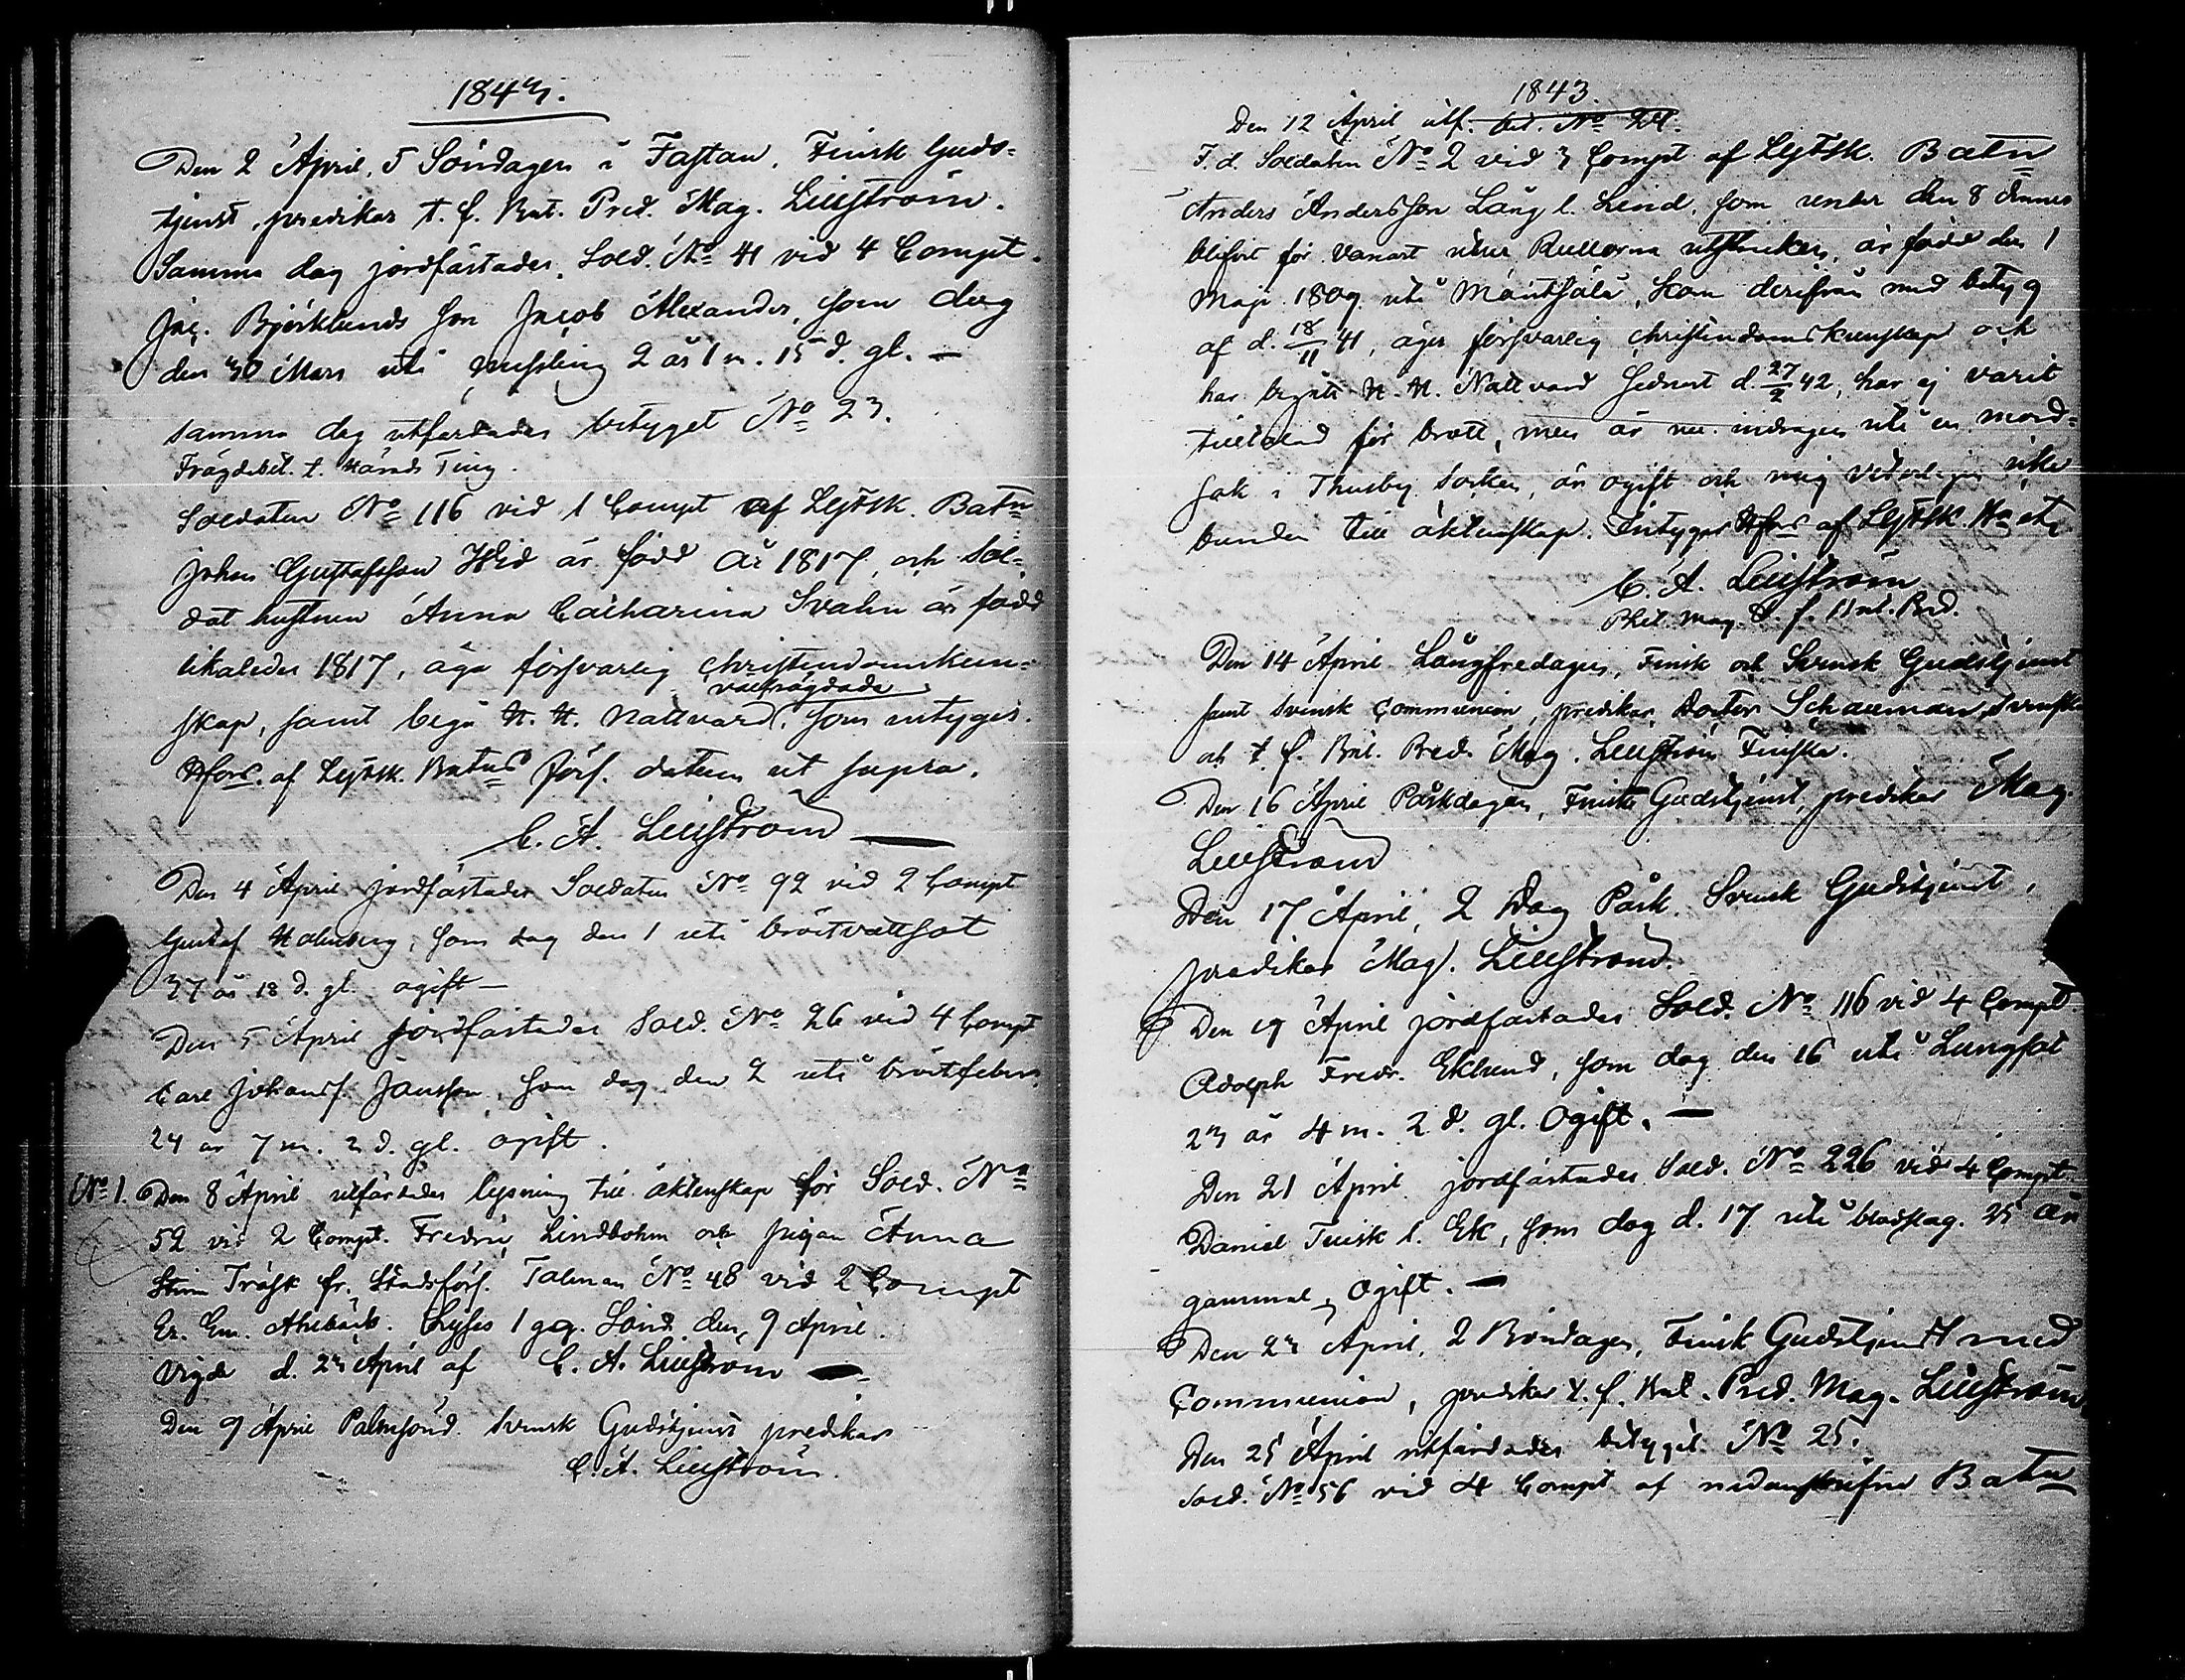 1843.
Den 2 April, 5 Söndagen i Fastan, Finsk Guds-
tjenst, predikar t. f. Bat. Pred. Mag. Lillström.
Samma dag jordfästades Sold. No 41 vid 4 Compt.
Jac. Björklunds son Jacob Alexander, som dog
den 30 Mars uti messling 2 år 1 m. 15 d. gl. —
samma dag utfärdades betyget No 23.
Frägdebet. t. Härads Ting.
Soldaten No 116 vid 1 Compt af Lijfsk. Batn
Johan Gustafsson Hid är född år 1817, och Sol-
dat hustrun Anna Catharina Svahn är född
likaledes 1817, äga försvarlig christendomskun-
välfrägdade
skap, samt begå H. H. Nattvard, som intygar.
Hfors. af Lijfsk. Batns förs. datum ut supra.
C. A. Lillström —
Den 4 April jordfästades Soldaten No 92 vid 2 Compt
Gustaf Holmberg, som dog den 1 uti bröstvattsot
37 år 18 d. gl. ogift —
Den 5 April jordfästades Sold. No 26 vid 4 Compt
Carl Johanss. Jansson, som dog den 2 uti bröstfeber
24 år 7 m. 2 d. gl. ogift.
No 1. Den 8 April utfärdades lysning till äktenskap för Sold. No
52 vid 2 Compt. Fredric Lindbohm och pigan Anna
Stina Träsk fr. Stadsförs. Talman No 48 vid 2 Compt
Er. Em. Ahlbäck. Lyses 1 gg. Sönd. den 9 April.
Vigde d. 23 April af C. A. Lillström —
Den 9 April Palmsönd. Svensk Gudstjenst predikar
C. A. Lillström.
1843.
Den 12 April utf. bet. No 24.
F. d. Soldaten No 2 vid 3 Compt af Lijfsk. Batn
Anders Andersson Lång l. Lind, som sedan den 8 dennes
blifvit för vanart utur Rullorna utstruken, är född den 1
Maji 1809 uti Mäntsälä, kom derifrån med betyg
af d. 18/11 41, äger försvarlig christendomskunskap och
har begått H. H. Nattvard sednast d. 27/2 42, har ej varit
tilltalad för brott, men är nu indragen uti en mord-
sak i Thusby Socken, är ogift och mig veterligen icke
bunden till äktenskap. Intygar Hfors af Lijfsk. Bn etc.
C. A. Lillström
Phil. Mag. t. f. Bat. Pred.
Den 14 April Långfredagen, Finsk och Svensk Gudstjenst
samt Svensk Communion, predikar Doctor Schauman, Svenska
och t. f. Bat. Pred. Mag. Lillström Finska.
Den 16 April Påskdagen, Finsk Gudstjenst, predikar Mag.
Lillström
Den 17 April, 2 Dag Påsk. Svensk Gudstjenst,
predikar Mag. Lillström.
Den 19 April jordfästades Sold. No 116 vid 4 Compt.
Adolph Fredr. Eklund, som dog den 16 uti Lungsot
23 år 4 m. 2 d. gl. Ogift. —
Den 21 April jordfästades Sold. No 226 vid 4 Compt
Daniel Tuisk l. Ek, som dog d. 17 uti blodslag. 25 år
gammal, Ogift. —
Den 23 April, 2 Böndagen, Finsk Gudstjenst med
Communion, predikar t. f. Bat. Pred. Mag. Lillström.
Den 25 April utfärdades betyget No 25.
Sold. No 56 vid 4 Compt af nedanskrifne Batn